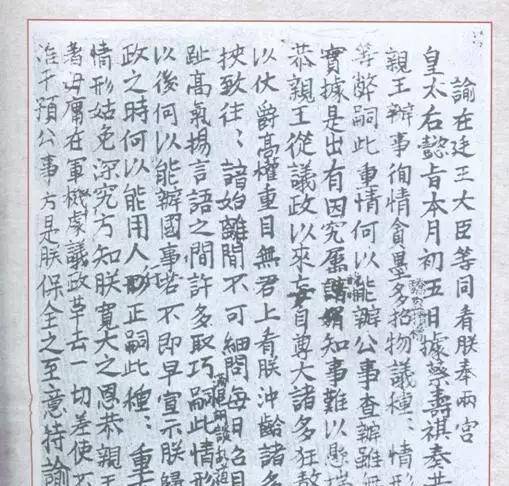 諭在廷王大臣等同看朕奉兩宮
皇太后懿旨本月初五日據蔡壽祺奏
親王辦事徇情貪墨多招物議種：情形
等弊嗣此重情何以能辦公事查辦雖無
實據是出有因究屬知事難以懸揣
恭親王從議政以來妄自尊大諸多狂敖
以仗爵高權重目無君上看朕沖齡諸多
挾致往：諳始離間不可細問每日召見
趾高氣揚言語之間許多取巧滿口胡談亂道嗣此情形
以後何以能辦國事若不即早宣示朕歸
政之時何以能用人行正嗣此種：重大
情形姑免深究方知朕寬大之恩恭親王
著毋庸在軍機處議政革去一切差使不
准干預公事方是朕保全之至意特諭